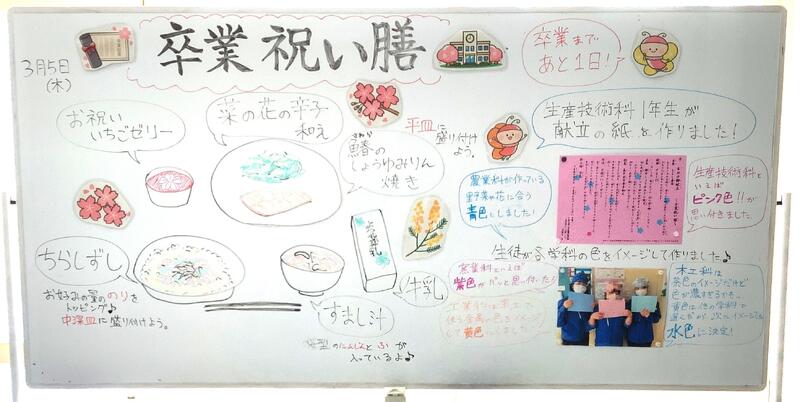 卒業祝い膳
3月5日
(木)
卒業まで
あと1日!
お祝い
いちごゼリー
菜の花の辛子
和え
平皿に
盛り付け
よう。
鰆の
しょうゆみりん
焼き
生産技術科1年生が
献立の紙を作りました!
農業科が作っている
野菜や花に合う
青色にしました!
生産技術科と
いえば
ピンク色!!が
思い付きました
生徒が各学科の色をイメージして作りました♪
ちらしずし
お好みの量ののりを
トッピング♪
中深皿に盛り付けよう。
すまし汁
牛乳
のにんじんとふが
入っているよ♪
窯業科といえば
紫色がパッと思い付いた!
黄色にしました!
木工科は
茶色のイメージだけど
色が濃すぎるから
黄色は他の学科と
水色に決定!